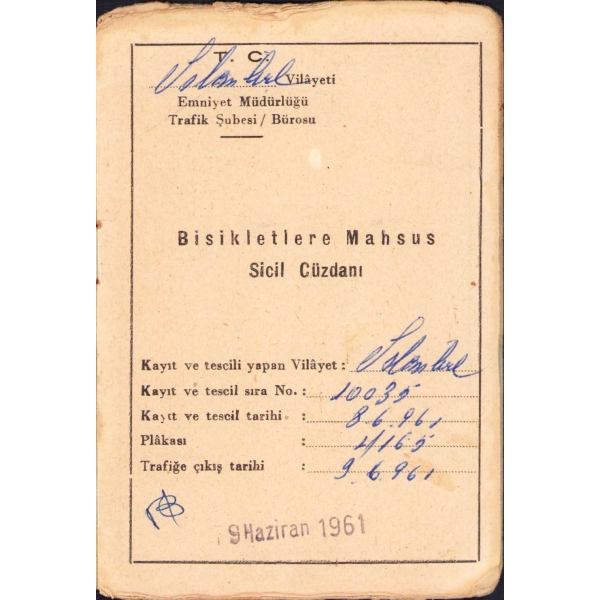 T. C.
İstanbul Vilâyeti
Emniyet Müdürlüğü
Trafik Şubesi / Bürosu
Bisikletlere Mahsus
Sicil Cüzdanı
Kayıt ve tescili yapan Vilâyet : İstanbul
Kayıt ve tescil sıra No. : 10035
Kayıt ve tescil tarihi : 8.6.961
Plâkası : 4165
Trafiğe çıkış tarihi : 9.6.961
9 Haziran 1961